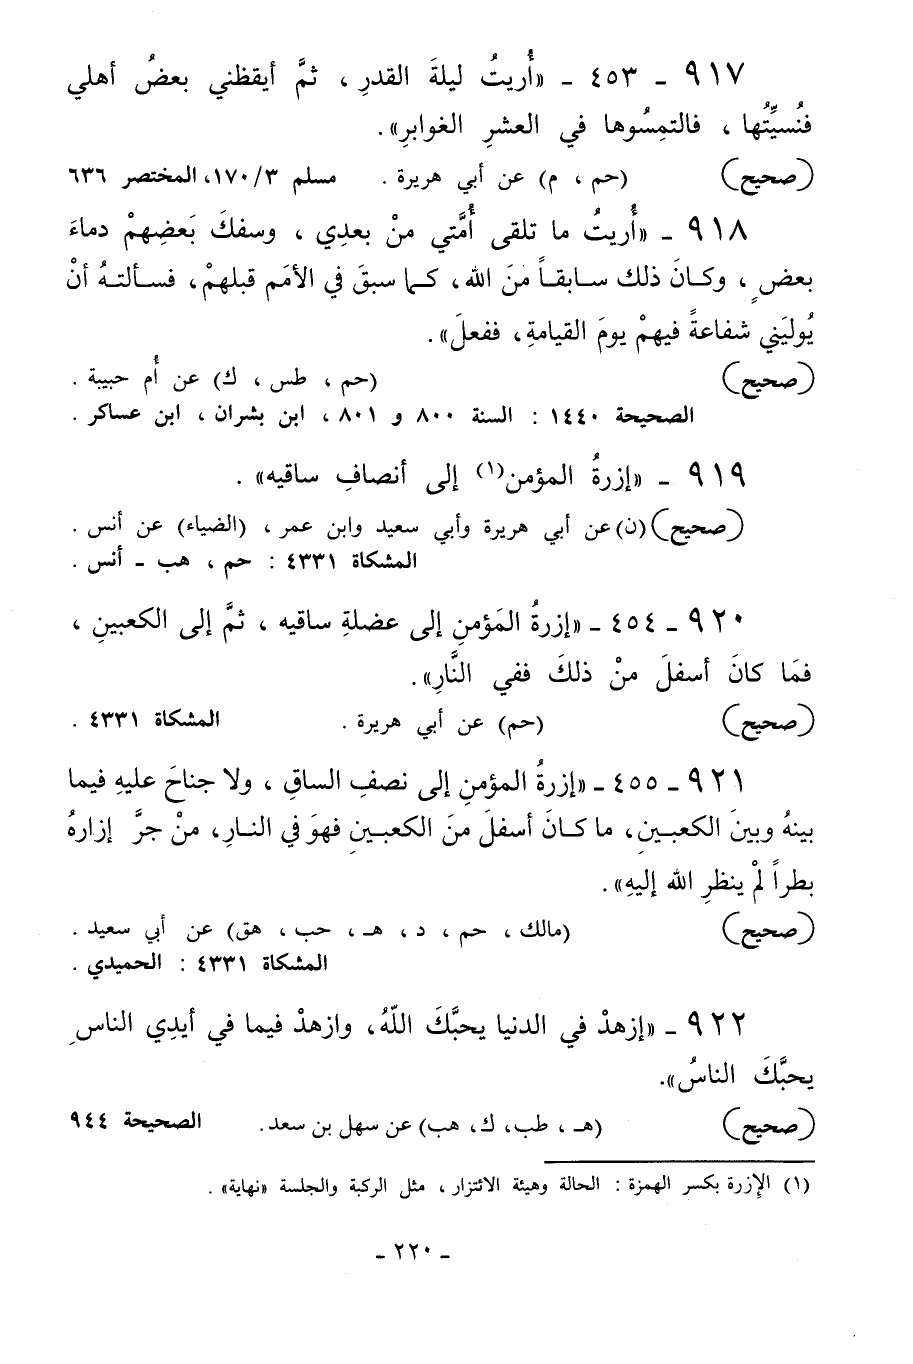 ٩١٧ - ٤٥٣ - «أُريتُ ليلةَ القدرِ ، ثمَّ أيقظني بعضُ أهلي
فنُسيِّتُها ، فالتمِسُوها في العشرِ الغوابرِ».
(صحيح) (حم ، م) عن أبي هريرة . مسلم ١٧٠/٣، المختصر ٦٣٦
٩١٨ - «أُريتُ ما تلقى أُمَّتي منْ بعدِي ، وسفكَ بَعضِهمْ دماءَ
بعضٍ ، وكـانَ ذلك سـابقـاً منَ الله، كـما سبقَ في الأمَم قبلهمْ، فسـألتـهُ أنْ
يُوليَني شفاعةً فيهمْ يومَ القيامةِ، ففعلَ».
(صحيح) (حم ، طس ، ك) عن أُم حبيبة .
الصحيحة ١٤٤٠ : السنة ٨٠٠ و ٨٠١ ، ابن بشران ، ابن عساكر .
٩١٩ - «إزرةُ المؤمن(١) إلى أنصافِ ساقيه» .
(صحيح) (ن) عن أبي هريرة وأبي سعيد وابن عمر ، (الضياء) عن أنس .
المشكاة ٤٣٣١ : حم ، هب - أنس .
٩٢٠ - ٤٥٤ - «إزرةُ المَؤمنِ إلى عضلةِ ساقيه ، ثمَّ إلى الكعبينِ ،
فمَا كانَ أسفلَ منْ ذلكَ ففي النَّارِ».
(صحيح) (حم) عن أبي هريرة . المشكاة ٤٣٣١ .
٩٢١ - ٤٥٥ - «إزرةُ المؤمنِ إلى نصفِ الساقِ ، ولا جناحَ عليهِ فيما
بينهُ وبينَ الكعبـينِ، ما كـانَ أسفلَ منَ الكعبـينِ فهوَ في النـارِ، منْ جرَّ إزارهُ
بطراً لمْ ينظرِ الله إليهِ».
(صحيح) (مالك ، حم ، د ، هـ ، حب ، هق) عن أبي سعيد .
المشكاة ٤٣٣١ : الحميدي .
٩٢٢ - «إزهدْ في الدنيا يحبَّكَ اللّهُ، وازهدْ فيما في أيدِي الناسِ
يحبَّكَ الناسُ».
(صحيح) (هـ ، طب، ك، هب) عن سهل بن سعد. الصحيحة ٩٤٤
(١) الإزرة بكسر الهمزة : الحالة وهيئة الائتزار ، مثل الركبة والجلسة «نهاية» .
- ٢٢٠ -